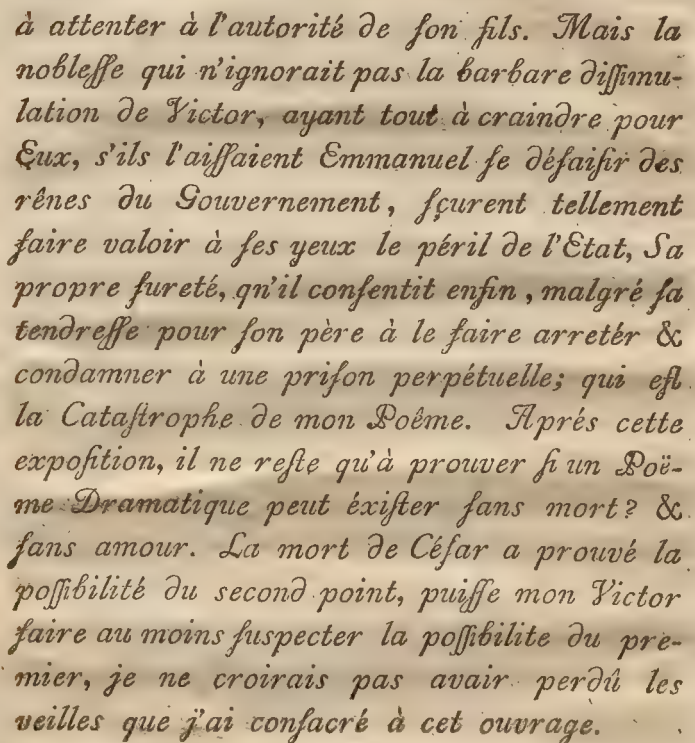 à attenter à l'autorité de ſon fils. Mais la
nobleſſe qui n'ignorait pas la barbare diſſimu-
lation de Victor, ayant tout à craindre pour
Eux, s'ils l'aiſſaient Emmanuel ſe déſaiſir des
rênes du Gouvernement, ſçurent tellement
faire valoir à ſes yeux le péril de l'Etat, Sa
propre fureté, qn'il conſentit enfin, malgré ſa
tendreſſe pour ſon père à le faire arretér &
condamner à une priſon perpétuelle; qui eſt
la Cataſtrophe de mon Poême. Aprés cette
expoſition, il ne reſte qu'à prouver ſi un Poë-
me Dramatique peut éxiſter ſans mort? &
ſans amour. La mort de Céſar a prouvé la
poſſibilité du second point, puiſſe mon Victor
faire au moins ſuspecter la poſſibilite du pre-
mier, je ne croirais pas avair perdû les
veilles que j'ai conſacré à cet ouvrage.